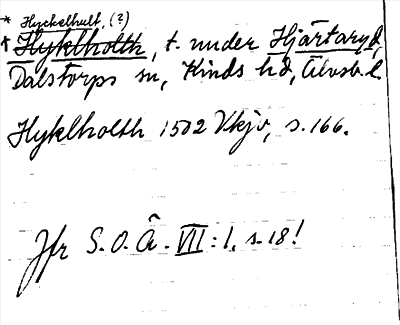 * Hyckelhult, (?)
* Hyklholth, t. under Hjärtaryd,
Dalstorps sn, Kinds hd, Älvsb. l.
Hyklholth 1502 Vkjr, s. 166.
Jfr S.O.Ä. VII:1, s. 18!